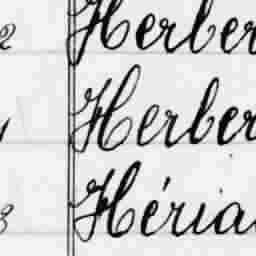 2 Herber
Herber
3 Héria